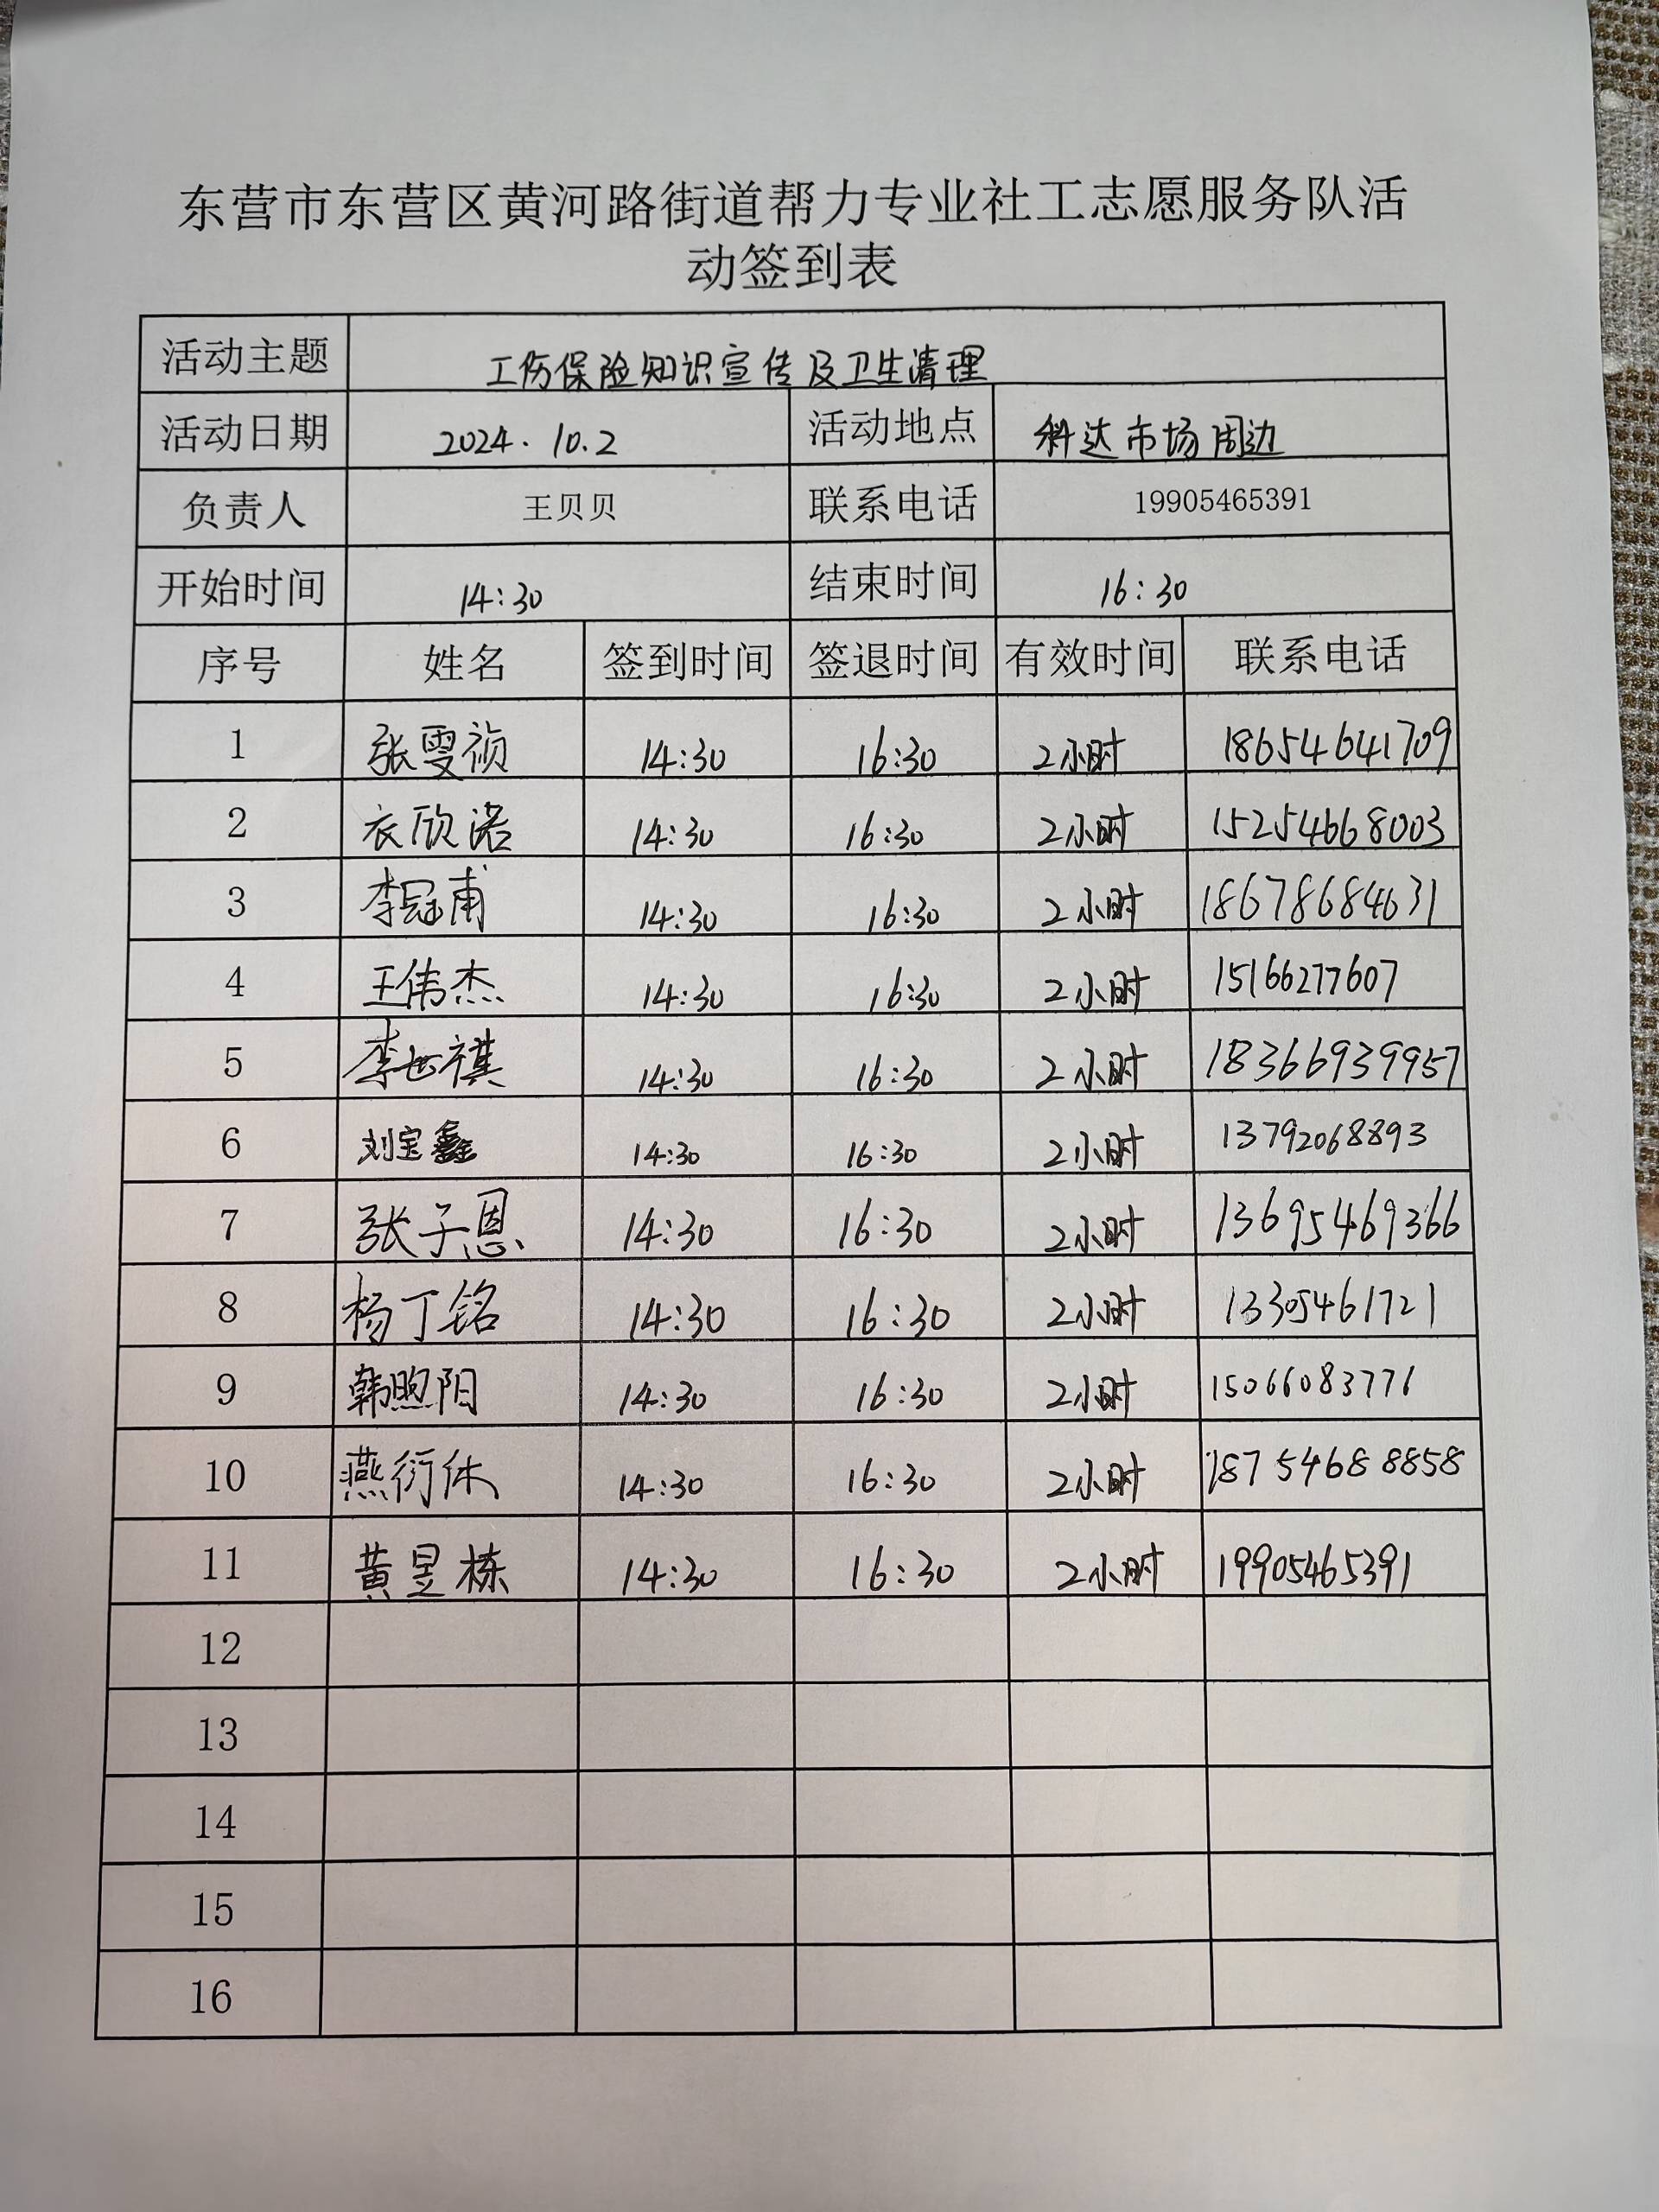 东营市东营区黄河路街道帮力专业社工志愿服务队活
动签到表
活动主题 工伤保险知识宣传及卫生清理
活动日期 2024.10.2 活动地点 科达市场周边
负责人 王贝贝 联系电话 19905465391
开始时间 14:30 结束时间 16:30
序号 姓名 签到时间 签退时间 有效时间 联系电话
1 张雯祯 14:30 16:30 2小时 18654641709
2 衣欣洛 14:30 16:30 2小时 15254668003
3 李冠甫 14:30 16:30 2小时 18678684631
4 王伟杰 14:30 16:30 2小时 15166277607
5 李世祺 14:30 16:30 2小时 18366939957
6 刘宝鑫 14:30 16:30 2小时 13792068893
7 张子恩 14:30 16:30 2小时 13695469366
8 杨丁铭 14:30 16:30 2小时 13305461721
9 韩煦阳 14:30 16:30 2小时 15066083776
10 燕衍休 14:30 16:30 2小时 18754688858
11 黄昱栋 14:30 16:30 2小时 19905465391
12
13
14
15
16